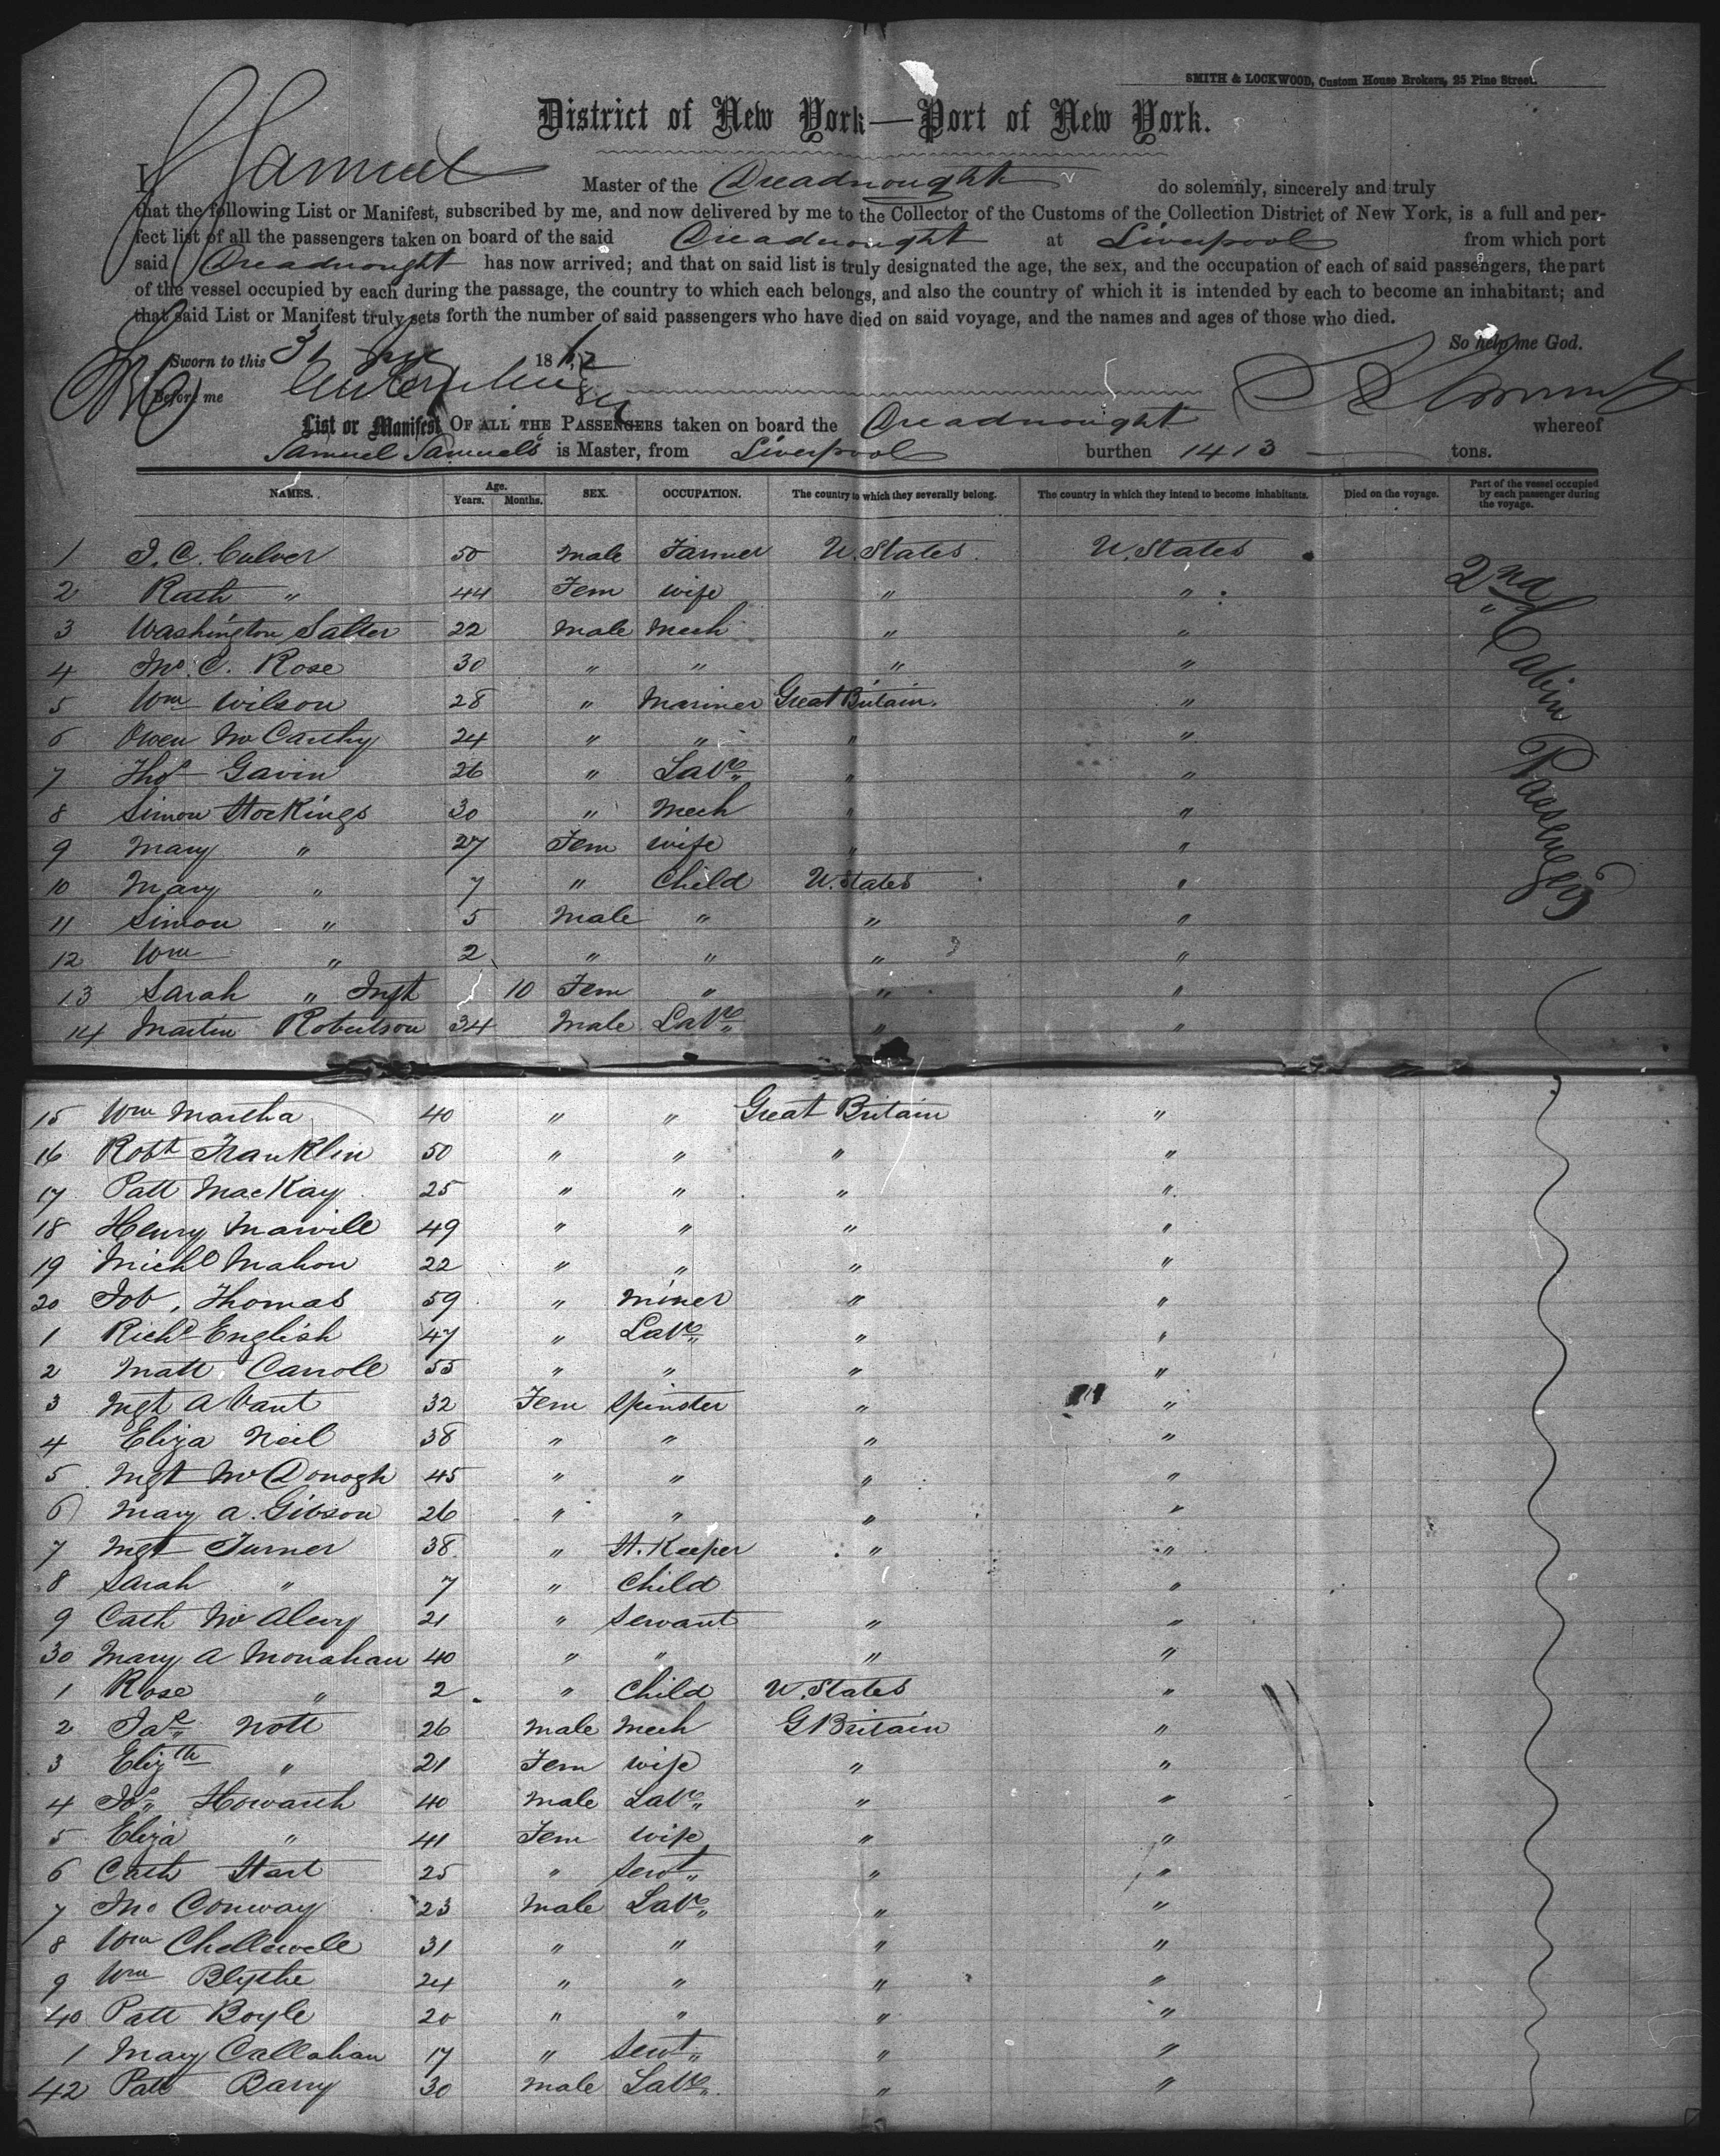 SMITH & LOCKWOOD, Custom House Brokers, 25 Pine Street.
District of New York—Port of New York.
I, S Samuels Master of the Dreadnought do solemnly, sincerely and truly
that the following List or Manifest, subscribed by me, and now delivered by me to the Collector of the Customs of the Collection District of New York, is a full and per-
fect list of all the passengers taken on board of the said Dreadnought at Liverpool from which port
said Dreadnought has now arrived; and that on said list is truly designated the age, the sex, and the occupation of each of said passengers, the part
of the vessel occupied by each during the passage, the country to which each belongs, and also the country of which it is intended by each to become an inhabitant; and
that said List or Manifest truly sets forth the number of said passengers who have died on said voyage, and the names and ages of those who died.
So help me God.
Sworn to this 31 186
Before me S Samuels
List or Manifest OF ALL THE PASSENGERS taken on board the Dreadnought whereof
Samuel Samuels is Master, from Liverpool burthen 1413 — tons.
NAMES. Age. Years. Months. SEX. OCCUPATION. The country to which they severally belong. The country in which they intend to become inhabitants. Died on the voyage. Part of the vessel occupied by each passenger during the voyage.
1 I. C. Culver 50 Male Farmer U. States U. States
2nd Cabin Passengers
2 Ruth " 44 Fem wife " "
3 Washington Salter 22 Male Mech " "
4 Jno. C. Rose 30 " " " "
5 Wm Wilson 28 " Mariner Great Britain. "
6 Owen McCarthy 24 " " " "
7 Thos Gavin 26 " Labr " "
8 Simon Stockings 30 " Mech " "
9 Mary " 27 Fem wife " "
10 Mary " 7 " Child U. States "
11 Simon " 5 Male " " "
12 Wm " 2 " " " "
13 Sarah " Inft 10 Fem " " "
14 Martin Robertson 34 Male Labr " "
15 Wm Martha 40 " " Great Britain "
16 Robt Franklin 50 " " " "
17 Patt MacKay 25 " " " "
18 Henry Marvile 49 " " " "
19 Michl Mahon 22 " " " "
20 Job. Thomas 59 " Miner " "
1 Richd English 47 " Labr " "
2 Matt Carrole 55 " " " "
3 Mgt A Vant 32 Fem Spinster " "
4 Eliza Neil 38 " " " "
5 Mgt McDonogh 45 " " " "
6 Mary A. Gibson 26 " " " "
7 Mgt Turner 38 " H. Keeper " "
8 Sarah " 7 " Child "
9 Cath McAlevy 21 " Servant " "
30 Mary A Monahan 40 " " " "
1 Rose " 2 " Child U. States "
2 Jas Nott 26 Male Mech G Britain "
3 Elizth " 21 Fem wife " "
4 Jos Howarth 40 Male Labr " "
5 Eliza " 41 Fem wife " "
6 Cath Hart 25 " Servt " "
7 Jno Conway 23 Male Labr " "
8 Wm Chellewele 31 " " " "
9 Wm Blythe 24 " " " "
40 Patt Boyle 20 " " " "
1 Mary Callahan 17 " Servt " "
42 Patt Barry 30 Male Labr " "